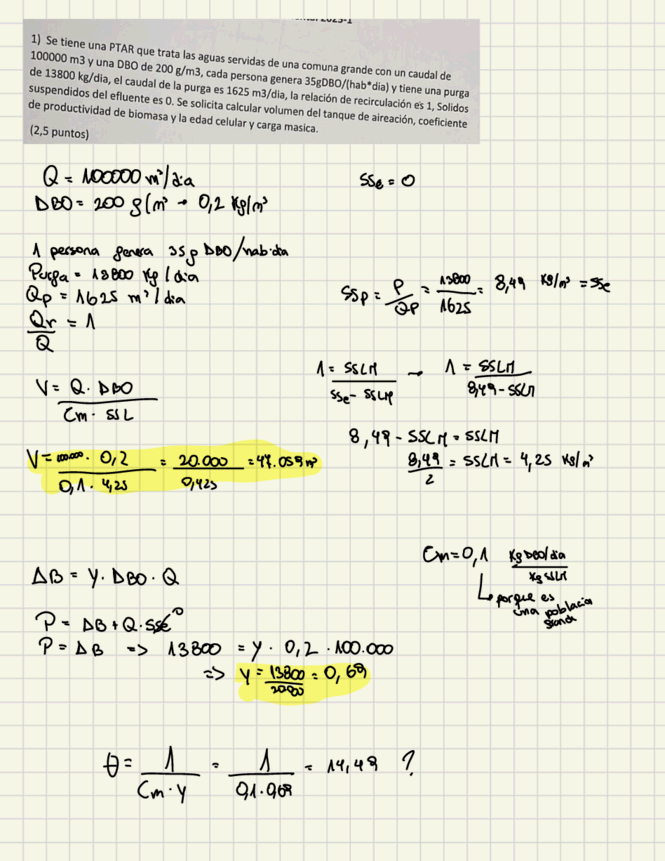 1) Se tiene una PTAR que trata las aguas servidas de una comuna grande con un caudal de
100000 m3 y una DBO de 200 g/m3, cada persona genera 35gDBO/(hab*dia) y tiene una purga
de 13800 kg/dia, el caudal de la purga es 1625 m3/dia, la relación de recirculación es 1, Solidos
suspendidos del efluente es 0. Se solicita calcular volumen del tanque de aireación, coeficiente
de productividad de biomasa y la edad celular y carga masica.
(2,5 puntos)
Q = 100000 m³/dia
SSe = 0
DBO = 200 g/m³ → 0,2 Kg/m³
1 persona genera 35g DBO/hab·dia
Purga = 13800 Kg/dia
Qp = 1625 m³/dia
SSp = P/Qp = 13800/1625 = 8,49 Kg/m³ = SSe
Qr/Q = 1
1 = SSLM/(SSe - SSLM) → 1 = SSLM/(8,49 - SSLM)
V = Q · DBO/(Cm · SSL)
8,49 - SSLM = SSLM
8,49/2 = SSLM = 4,25 Kg/m³
V = 100.000 · 0,2/(0,1 · 4,25) = 20.000/0,425 = 47.059 m³
Cm = 0,1 Kg DBO/dia/Kg SSLM
porque es
una poblacion
grande
ΔB = Y · DBO · Q
P = ΔB + Q · SSe⁰
P = ΔB => 13800 = Y · 0,2 · 100.000
=> Y = 13800/20000 = 0,69
θ = 1/(Cm · Y) = 1/(0,1 · 0,69) = 14,49 ?